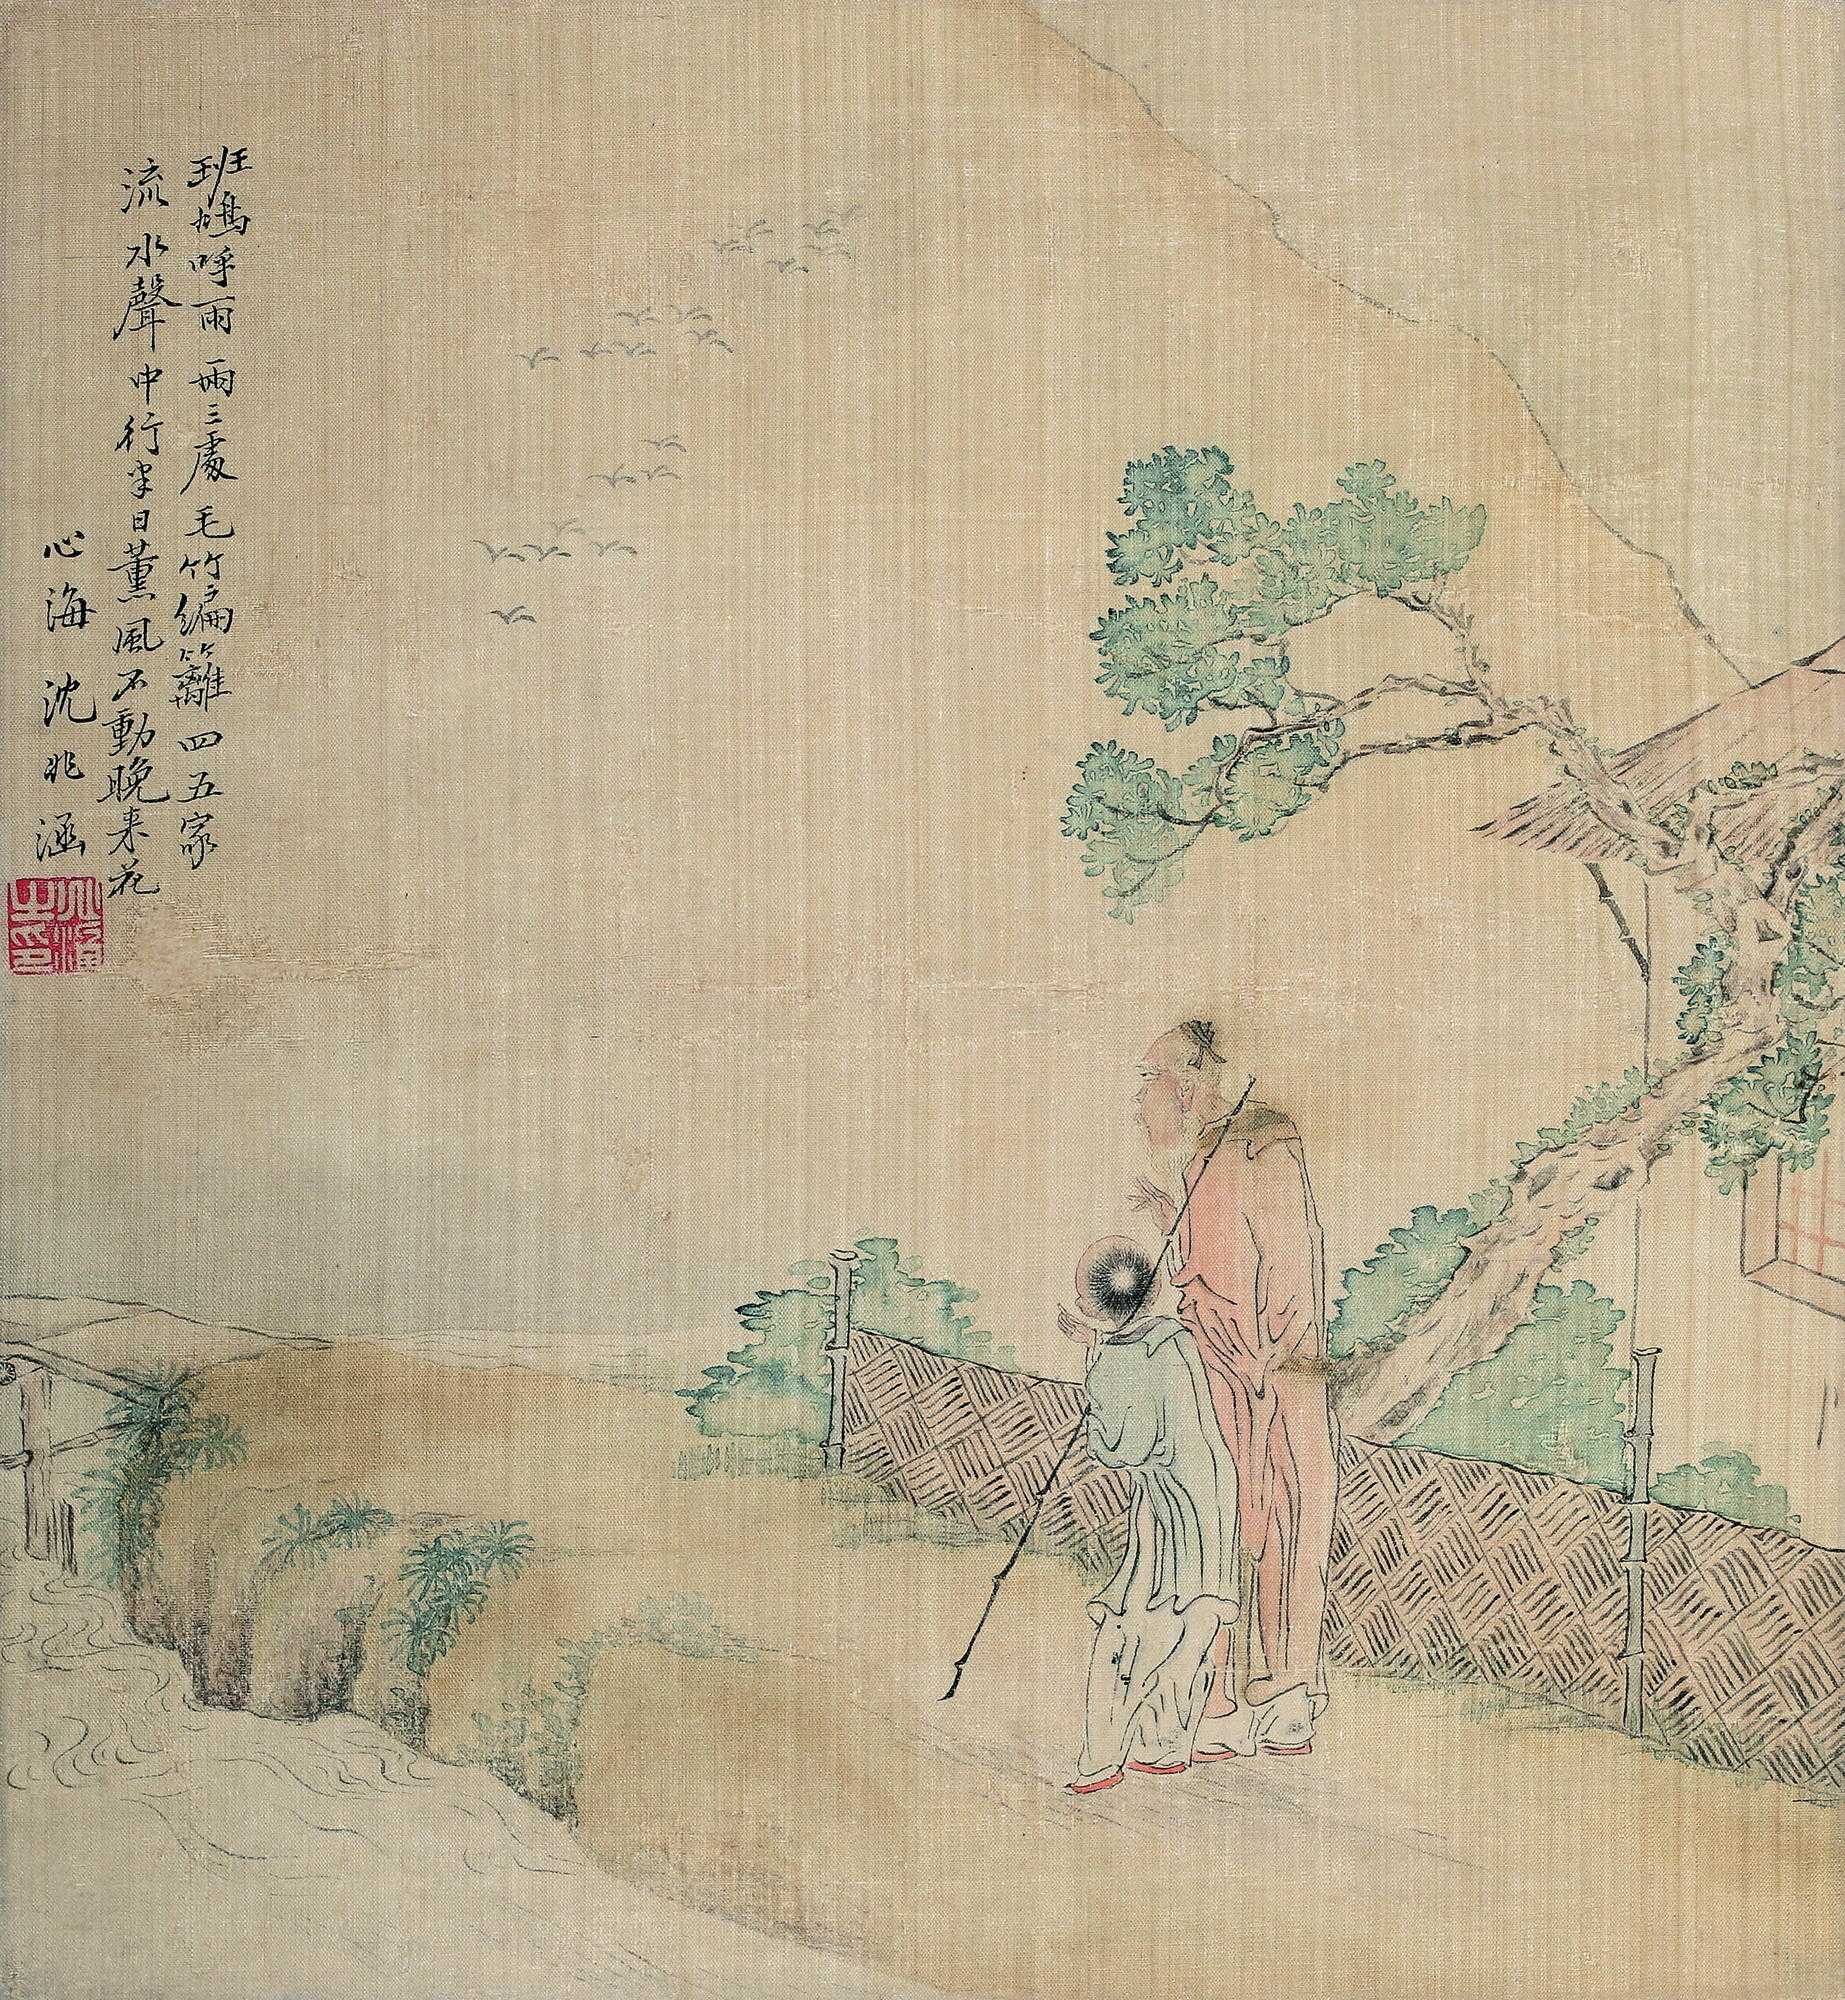 班鳩呼雨兩三處毛竹編籬四五家
流水聲中行半日薰風不動晚来花
心海沈兆涵
心海之印